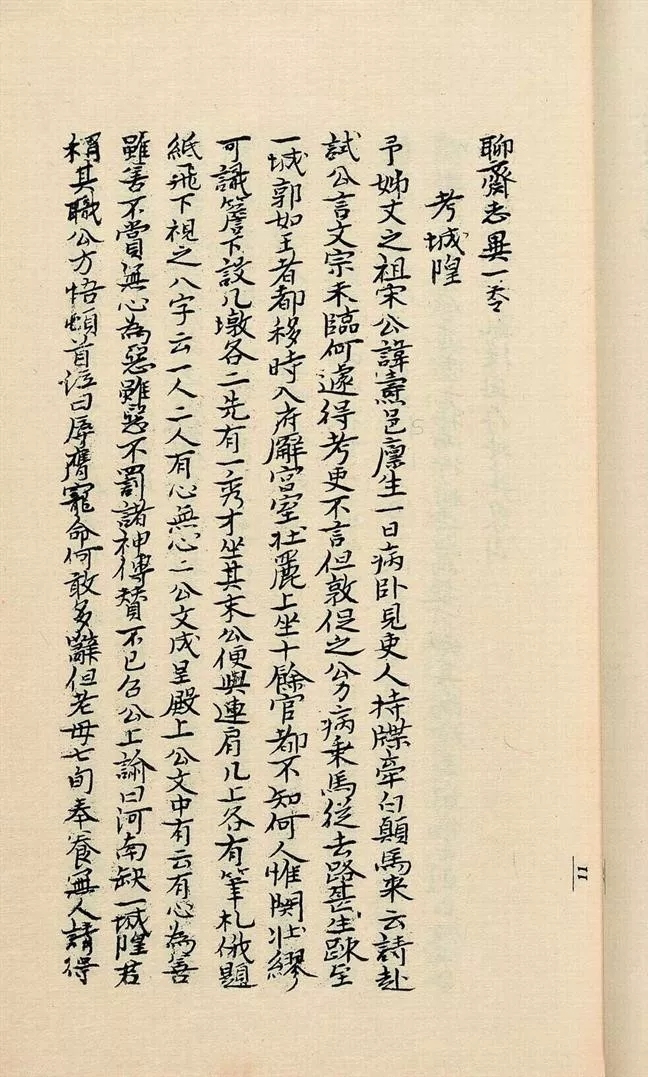 聊齋志異一卷
考城隍
予姊丈之祖宋公諱燾邑廩生一日病臥見吏人持牒牽白顛馬來云請赴
試公言文宗未臨何遽得考吏不言但敦促之公力病乘馬從去路甚生疎至
一城郭如王者都移時入府廨宮室壯麗上坐十餘官都不知何人惟関壯繆
可識簷下設几墩各二先有一秀才坐其末公便與連肩几上各有筆札俄題
紙飛下視之八字云一人二人有心無心二公文成呈殿上公文中有云有心為善
雖善不賞無心為惡雖惡不罰諸神傳贊不已召公上諭曰河南缺一城隍君
稱其職公方悟頓首泣曰辱膺寵命何敢多辭但老母七旬奉養無人請得
11